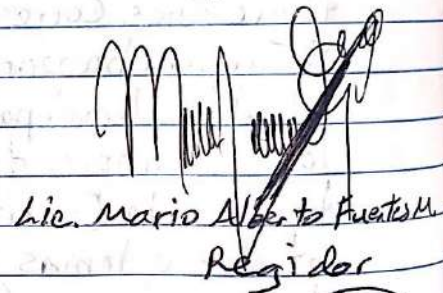 Lic. Mario Alberto Fuentes M.
Regidor